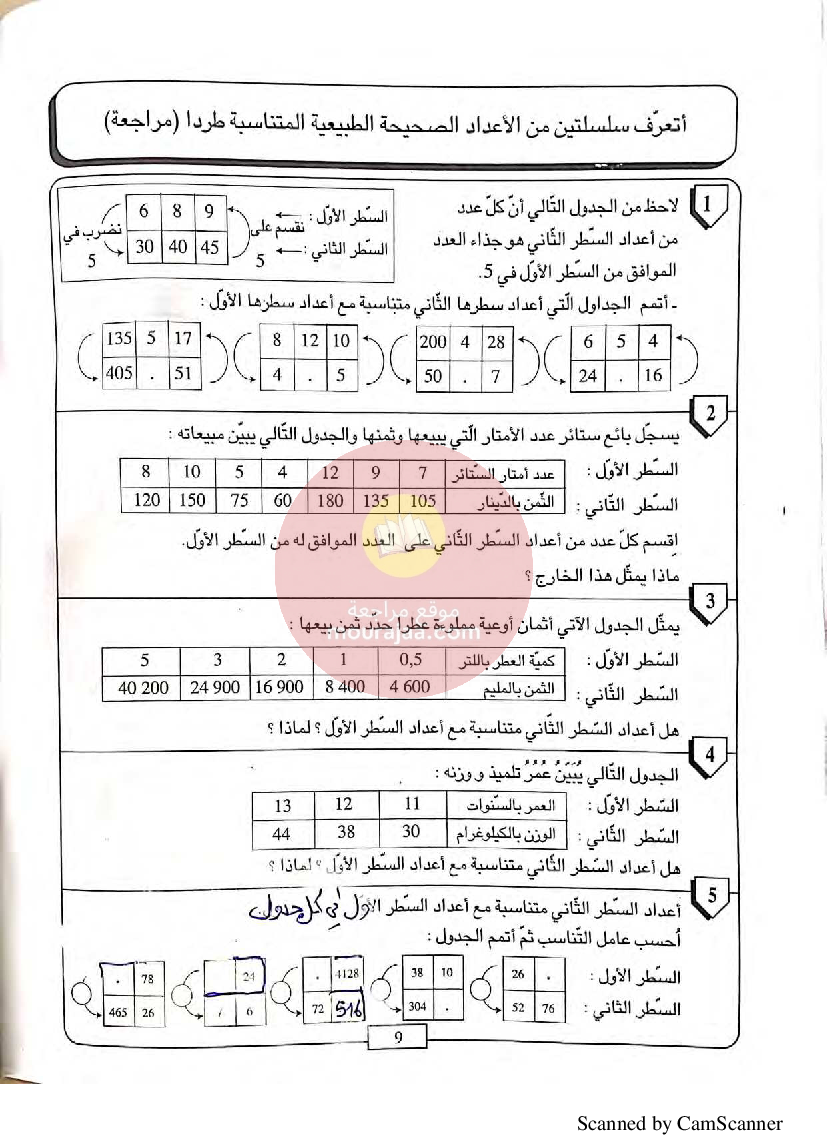 أتعرّف سلسلتين من الأعداد الصحيحة الطبيعية المتناسبة طردا (مراجعة)
1
لاحظ من الجدول التّالي أنّ كلّ عدد
من أعداد السّطر الثّاني هو جذاء العدد
الموافق من السّطر الأوّل في 5.
السّطر الأوّل : نقسم على 5 9 8 6 نضرب في 5
السّطر الثّاني : 45 40 30
ـ أتمم الجداول الّتي أعداد سطرها الثّاني متناسبة مع أعداد سطرها الأوّل :
4 5 6
16 . 24
28 4 200
7 . 50
10 12 8
5 . 4
17 5 135
51 . 405
2
يسجّل بائع ستائر عدد الأمتار الّتي يبيعها وثمنها والجدول التّالي يبيّن مبيعاته :
السّطر الأوّل : عدد أمتار السّتائر 7 9 12 4 5 10 8
السّطر الثّاني : الثّمن بالدّينار 105 135 180 60 75 150 120
اِقسم كلّ عدد من أعداد السّطر الثّاني على العدد الموافق له من السّطر الأوّل.
ماذا يمثّل هذا الخارج ؟
موقع مراجعة
mourajaa.com
3
يمثّل الجدول الآتي أثمان أوعية مملوءة عطرا حدّد ثمن بيعها :
السّطر الأوّل : كميّة العطر باللتر 0,5 1 2 3 5
السّطر الثّاني : الثمن بالمليم 4 600 8 400 16 900 24 900 40 200
هل أعداد السّطر الثّاني متناسبة مع أعداد السّطر الأوّل ؟ لماذا ؟
4
الجدول التّالي يُبَيّنُ عُمُرُ تلميذ ووزنه :
السّطر الأوّل : العمر بالسّنوات 11 12 13
السّطر الثّاني : الوزن بالكيلوغرام 30 38 44
هل أعداد السّطر الثّاني متناسبة مع أعداد السّطر الأوّل ؟ لماذا ؟
5
أعداد السّطر الثّاني متناسبة مع أعداد السّطر الأوّل في كل جدول
أحسب عامل التّناسب ثمّ أتمم الجدول :
السّطر الأوّل : . 26 10 38 4128 . 24 78 .
السّطر الثّاني : 76 52 . 304 516 72 6 26 465
9
Scanned by CamScanner